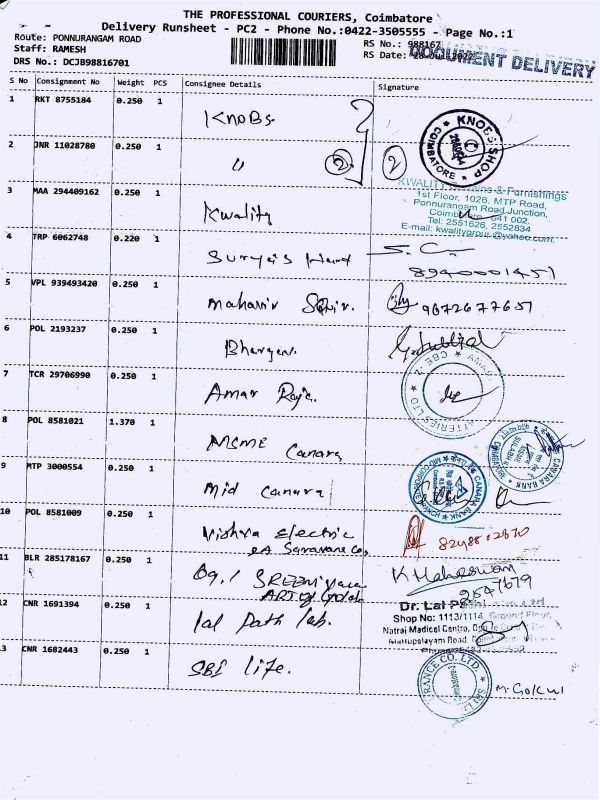 THE PROFESSIONAL COURIERS, Coimbatore
Delivery Runsheet - PC2 - Phone No.:0422-3505555 - Page No.:1
Route: PONNURANGAM ROAD
Staff: RAMESH
DRS No.: DCJB98816701
RS No.: 988167
RS Date:
DOCUMENT DELIVERY
S No Consignment No Weight PCS Consignee Details Signature
1 RKT 8755184 0.250 1 KnoBs
KNOBS SHOP
COIMBATORE
2 JNR 11028780 0.250 1 " 2 2
3 MAA 294409162 0.250 1 Kwality
KWALITY & Furnishings
1st Floor, 1026, MTP Road,
Ponnurangam Road Junction,
641 002.
Tel: 2551626, 2552834
E-mail: kwalitygroup@yahoo.com
4 TRP 6062748 0.220 1 Surya's S.C.
8940001451
5 VPL 939493420 0.250 1 Mahavir 9872677651
6 POL 2193237 0.250 1 Bhargavi
7 TCR 29706990 0.250 1 Amar Raja
BATTERIES LTD CBE
8 POL 8581021 1.370 1 MSME Canara
CANARA BANK
9 MTP 3000554 0.250 1 Mid Canara
CANARA BANK
10 POL 8581009 0.250 1 Vishva Electric
8248802870
11 BLR 285178167 0.250 1 K Maheswari
2547679
12 CNR 1691394 0.250 1 lal Path lab.
Dr. Lal
Shop No: 1113/1114, Ground Floor,
Natraj Medical Centre,
Mettupalayam Road,
13 CNR 1682443 0.250 1 SBI life.
M. Gokul